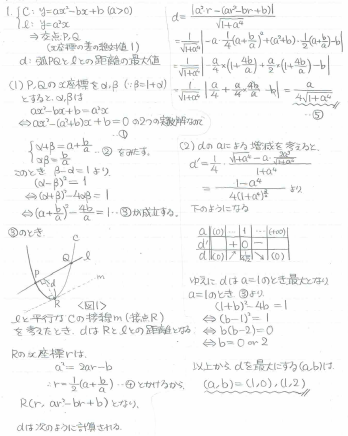 1. { C: y=ax²-bx+b (a>0)
l: y=a²x
⇒ 交点P,Q
(x座標の差の絶対値1)
d: 弧PQとlとの距離の最大値
(1) P,Qのx座標をα,β (∵β=1+α)
とすると、α,βは
ax²-bx+b=a²x
⇔ ax²-(a²+b)x+b=0 の2つの実数解なので
…①
{ α+β=a+b/a
αβ=b/a …② をみたす。
このとき β-α=1より
(α-β)²=1
⇔(α+β)²-4αβ=1
⇔(a+b/a)²-4b/a=1…③が成立する。
③のとき、
C
l
Q
P
d
m
R
<図1>
lと平行なCの接線m(接点R)
を考えたとき、dはRとlとの距離となる
Rのx座標rは、
a²=2ar-b
∴r=1/2(a+b/a) …④とかけるから、
R(r, ar²-br+b)となり、
dは次のように計算される。
d=|a²r-(ar²-br+b)|/√(1+a⁴)
=1/√(1+a⁴)|-a·1/4(a+b/a)²+(a²+b)·1/2(a+b/a)-b|
=1/√(1+a⁴)|-a/4×(1+4b/a)+a/2×(1+4b/a)-b|
=1/√(1+a⁴)|a/4+a/4·4b/a-b|=a/(4√(1+a⁴))
…⑤
(2) dのaによる増減を考えると、
d'=1/4·(√(1+a⁴)-a·2a³/√(1+a⁴))/(1+a⁴)
=(1-a⁴)/(4(1+a⁴)^(3/2)) より
下のようになる
a (0) … 1 … (+∞)
d' + 0 -
d (0) ↗ ↘ (0)
ゆえに dはa=1のとき最大となり
a=1のとき、③より、
(1+b)²-4b=1
⇔(b-1)²=1
⇔b(b-2)=0
⇔b=0 or 2
以上から dを最大にする(a,b)は、
(a,b)=(1,0),(1,2)